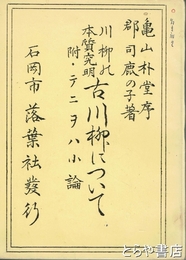 亀山朴堂序
郡司鹿の子著
川柳の本質究明
古川柳について
附・テニヲハ小論
石岡市 落葉社發行
とろや書店